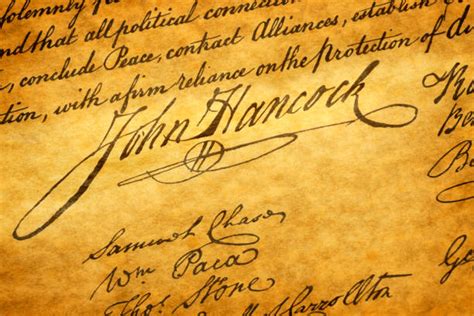 solemnly
nd that all political connection
, conclude Peace, contract Alliances, establish
tion, with a firm reliance on the protection of di
John Hancock
Samuel Chase
Wm Paca
Thos Stone
Carrollton
Be
Be
Ge